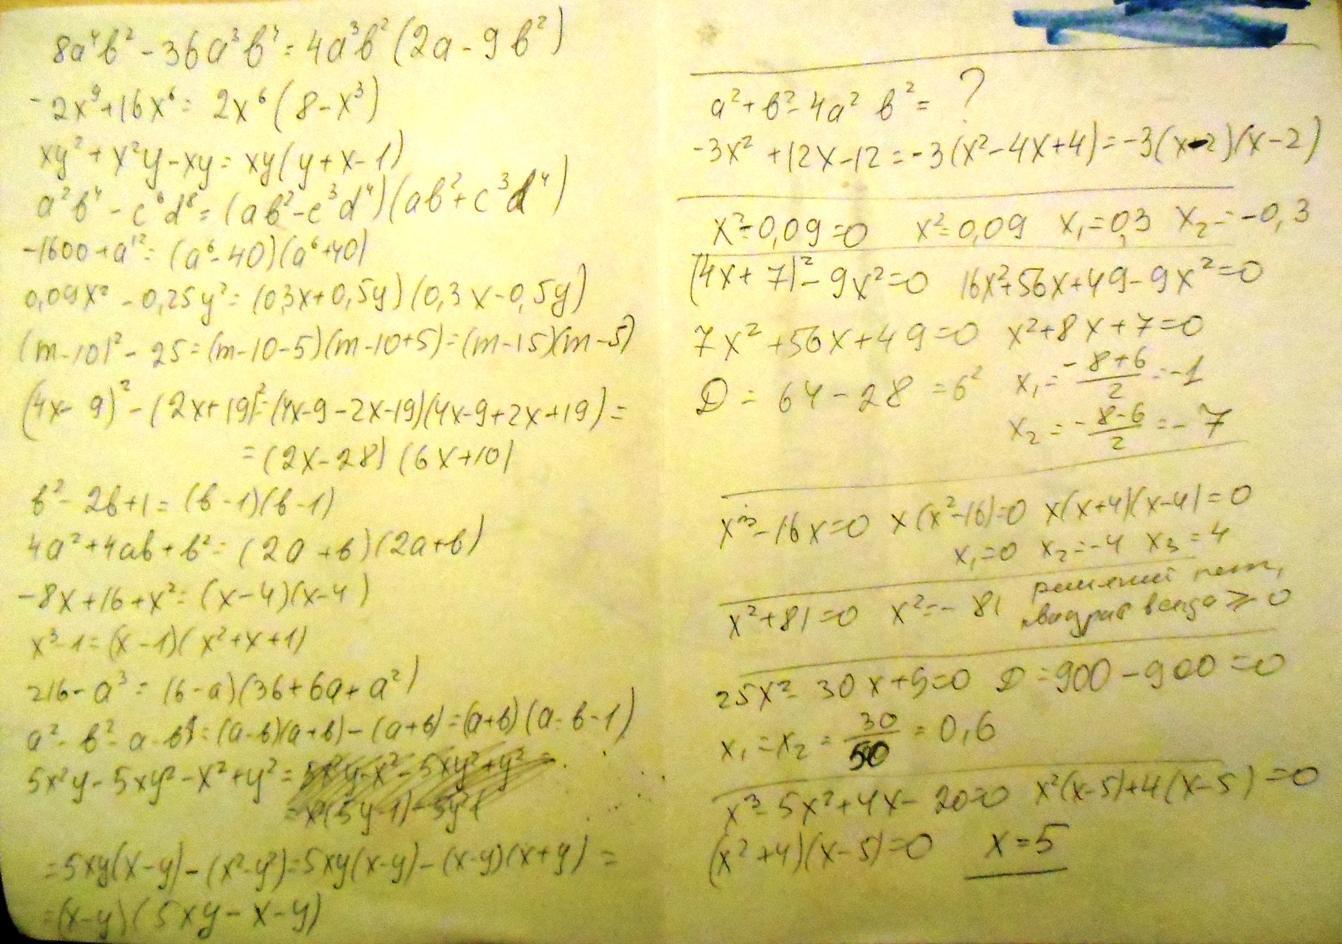 8a⁴b² - 36a³b⁴ = 4a³b²(2a - 9b²)
-2x⁹ + 16x⁶ = 2x⁶(8 - x³)
xy² + x²y - xy = xy(y + x - 1)
a²b⁴ - c⁶d⁸ = (ab² - c³d⁴)(ab² + c³d⁴)
-1600 + a¹² = (a⁶ - 40)(a⁶ + 40)
0,09x² - 0,25y² = (0,3x + 0,5y)(0,3x - 0,5y)
(m - 10)² - 25 = (m - 10 - 5)(m - 10 + 5) = (m - 15)(m - 5)
(4x - 9)² - (2x + 19)² = (4x - 9 - 2x - 19)(4x - 9 + 2x + 19) =
= (2x - 28)(6x + 10)
b² - 2b + 1 = (b - 1)(b - 1)
4a² + 4ab + b² = (2a + b)(2a + b)
-8x + 16 + x² = (x - 4)(x - 4)
x³ - 1 = (x - 1)(x² + x + 1)
216 - a³ = (6 - a)(36 + 6a + a²)
a² - b² - a - b = (a - b)(a + b) - (a + b) = (a + b)(a - b - 1)
5x²y - 5xy² - x² + y² = 5x²y - x² - 5xy² + y² =
= x²(5y - 1) - 5y
= 5xy(x - y) - (x² - y²) = 5xy(x - y) - (x - y)(x + y) =
= (x - y)(5xy - x - y)
a² + b² - 4a² b² = ?
-3x² + 12x - 12 = -3(x² - 4x + 4) = -3(x - 2)(x - 2)
x² - 0,09 = 0 x² = 0,09 x₁ = 0,3 x₂ = -0,3
(4x + 7)² - 9x² = 0 16x² + 56x + 49 - 9x² = 0
7x² + 56x + 49 = 0 x² + 8x + 7 = 0
D = 64 - 28 = 6² x₁ = (-8+6)/2 = -1
x₂ = (-8-6)/2 = -7
x³ - 16x = 0 x(x² - 16) = 0 x(x + 4)(x - 4) = 0
x₁ = 0 x₂ = -4 x₃ = 4
x² + 81 = 0 x² = -81 решений нет,
квадрат всегда ≥ 0
25x² - 30x + 9 = 0 D = 900 - 900 = 0
x₁ = x₂ = 30/50 = 0,6
x³ - 5x² + 4x - 20 = 0 x²(x - 5) + 4(x - 5) = 0
(x² + 4)(x - 5) = 0 x = 5